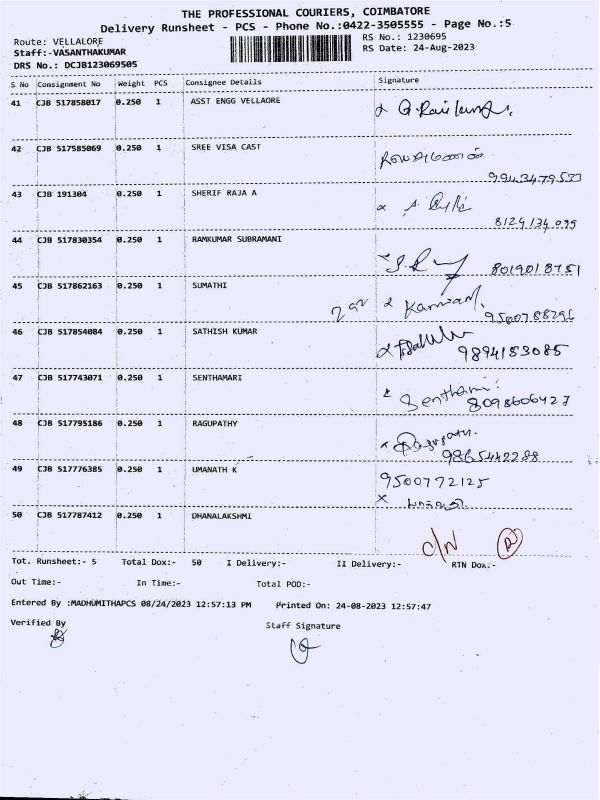 THE PROFESSIONAL COURIERS, COIMBATORE
Delivery Runsheet - PCS - Phone No.:0422-3505555 - Page No.:5
Route: VELLALORE RS No.: 1230695
Staff:-VASANTHAKUMAR RS Date: 24-Aug-2023
DRS No.: DCJB123069505
S No Consignment No Weight PCS Consignee Details Signature
41 CJB 517858017 0.250 1 ASST ENGG VELLAORE
42 CJB 517585069 0.250 1 SREE VISA CAST
9943479533
43 CJB 191304 0.250 1 SHERIF RAJA A
8124134099
44 CJB 517830354 0.250 1 RAMKUMAR SUBRAMANI
8019018751
45 CJB 517862163 0.250 1 SUMATHI
9500788296
46 CJB 517854084 0.250 1 SATHISH KUMAR
9894153085
47 CJB 517743071 0.250 1 SENTHAMARI
8098606427
48 CJB 517795186 0.250 1 RAGUPATHY
9865442288
49 CJB 517776385 0.250 1 UMANATH K 9500772125
50 CJB 517787412 0.250 1 DHANALAKSHMI
C/N
Tot. Runsheet:- 5 Total Dox:- 50 I Delivery:- II Delivery:- RTN Dox:-
Out Time:- In Time:- Total POD:-
Entered By :MADHUMITHAPCS 08/24/2023 12:57:13 PM Printed On: 24-08-2023 12:57:47
Verified By Staff Signature